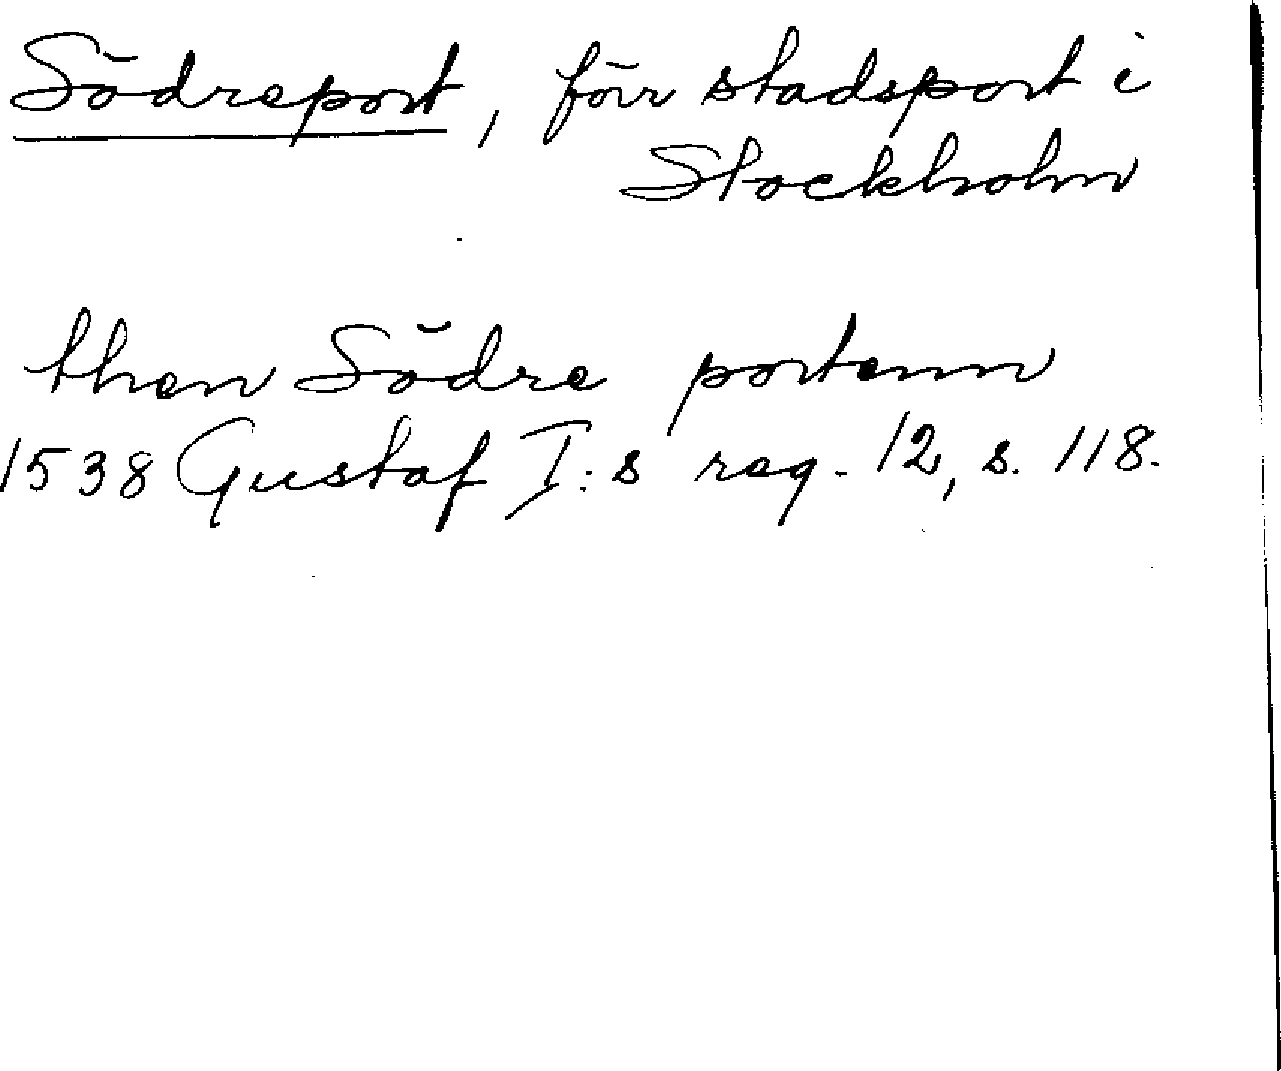 Södreport, förr stadsport i
Stockholm
then Södre portenn
1538 Gustaf I:s reg. 12, s. 118.